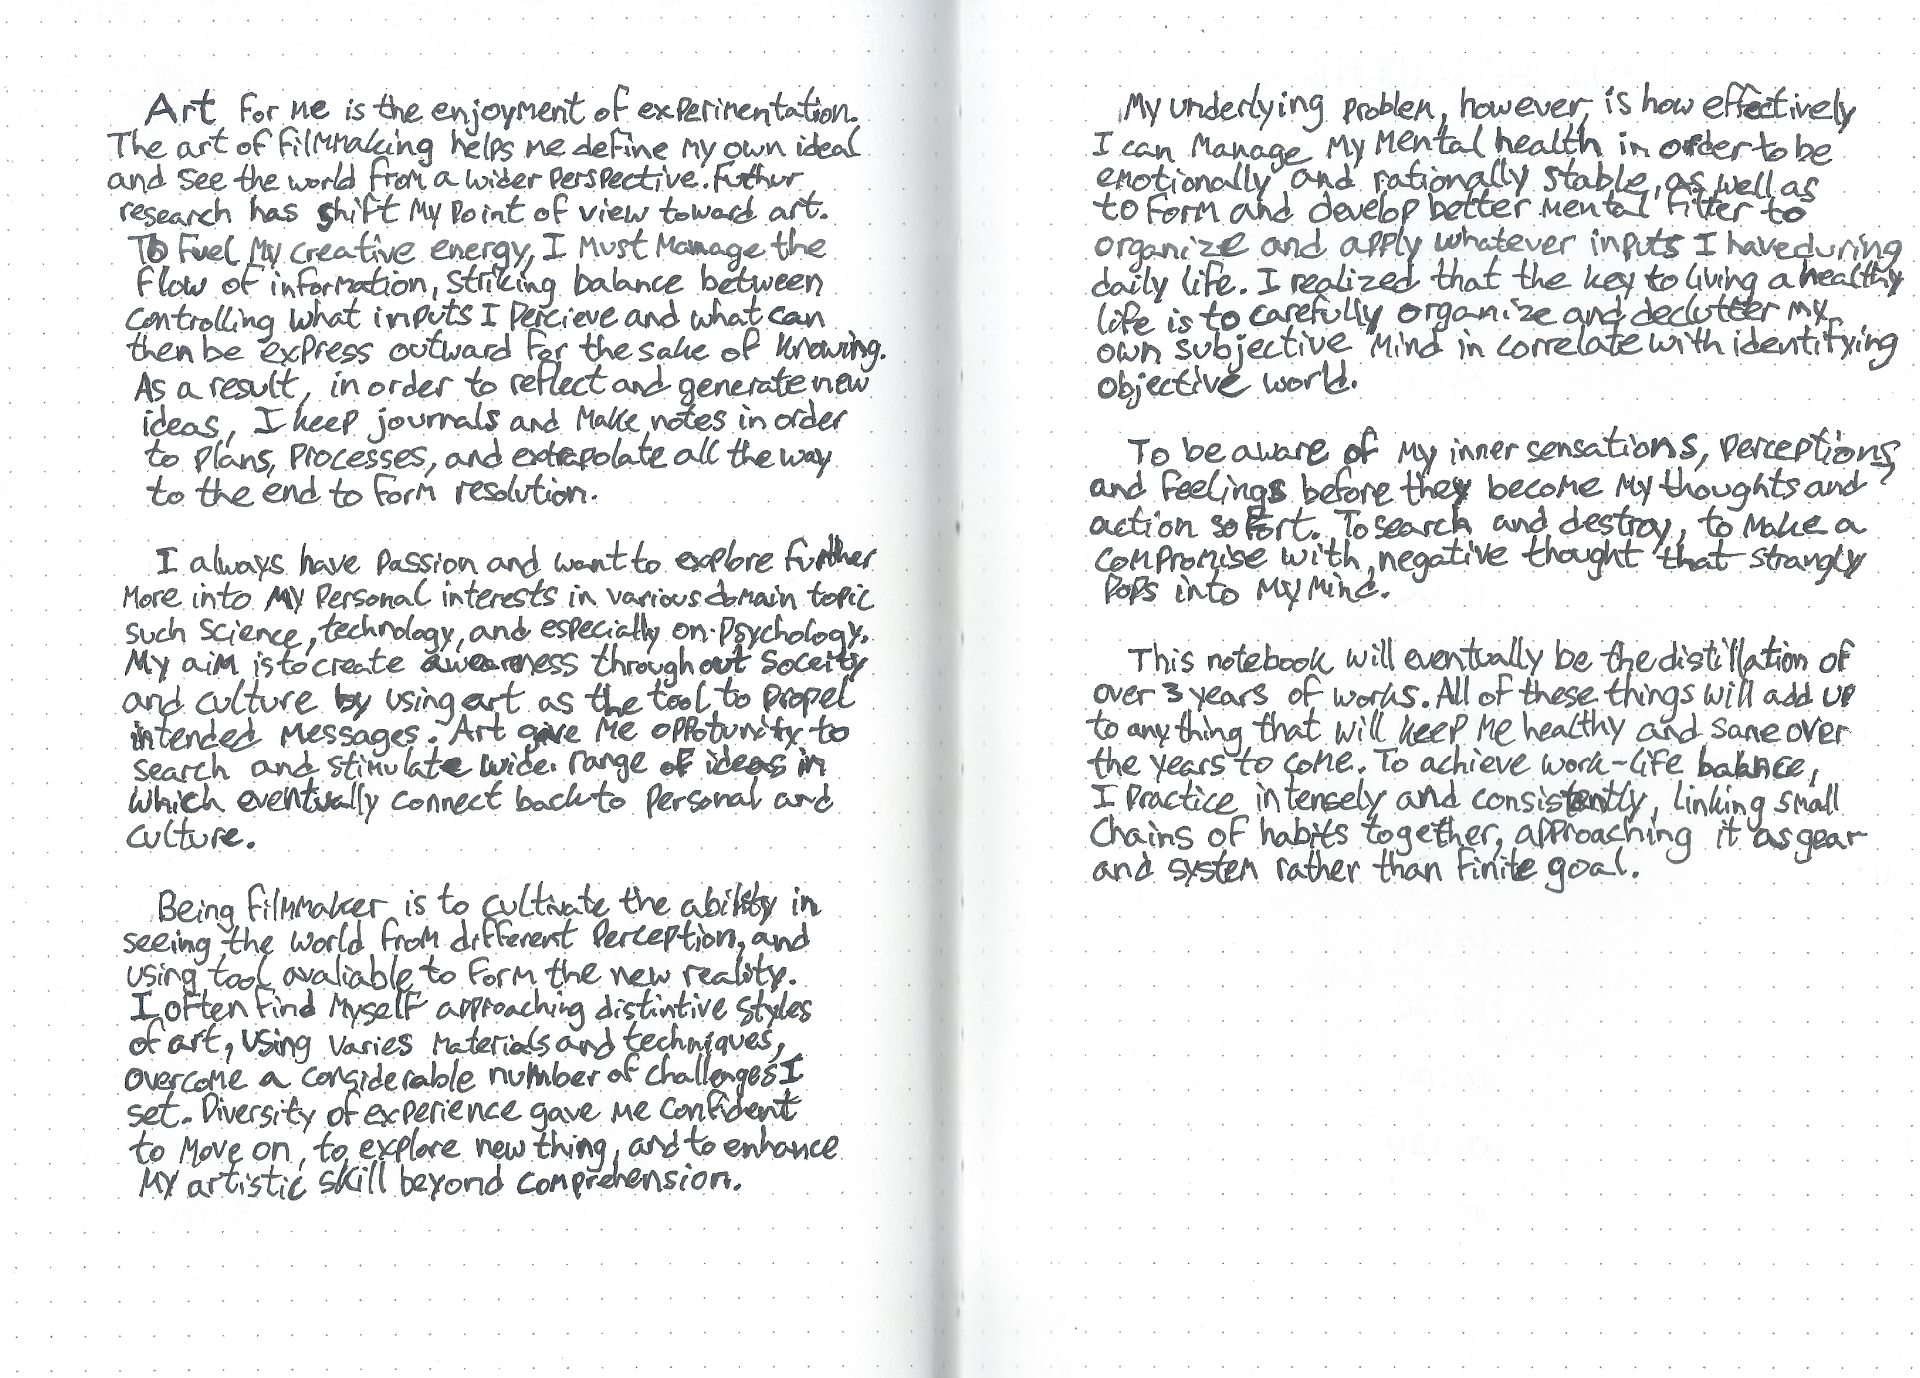 Art for me is the enjoyment of experimentation.
The art of filmmaking helps me define my own ideal
and see the world from a wider perspective. Futhur
research has shift my point of view toward art.
To fuel my creative energy, I must manage the
flow of information, striking balance between
controlling what inputs I percieve and what can
then be express outward for the sake of knowing.
As a result, in order to reflect and generate new
ideas, I keep journals and make notes in order
to plans, processes, and extrapolate all the way
to the end to form resolution.
I always have passion and want to explore further
more into my personal interests in various domain topic
such science, technology, and especially on psychology.
My aim is to create awareness throughout soceity
and culture by using art as the tool to propel
intended messages. Art give me oppotunity to
search and stimulate wide range of ideas in
which eventually connect back to personal and
culture.
Being filmmaker is to cultivate the ability in
seeing the world from different perception, and
using tool avaliable to form the new reality.
I often find myself approaching distintive styles
of art, using varies materials and techniques,
overcome a considerable number of challenges I
set. Diversity of experience gave me confident
to move on, to explore new thing, and to enhance
my artistic skill beyond comprehension.
My underlying problem, however, is how effectively
I can manage my mental health in order to be
emotionally and rationally stable, as well as
to form and develop better mental filter to
organize and apply whatever inputs I have during
daily life. I realized that the key to living a healthy
life is to carefully organize and declutter my
own subjective mind in correlate with identifying
objective world.
To be aware of my inner sensations, perceptions,
and feelings before they become my thoughts and
action so fort. To search and destroy, to make a
compromise with, negative thought that strangly
pops into my mind.
This notebook will eventually be the distillation of
over 3 years of works. All of these things will add up
to anything that will keep me healthy and sane over
the years to come. To achieve work-life balance,
I practice intensely and consistently, linking small
chains of habits together, approaching it as gear
and system rather than finite goal.